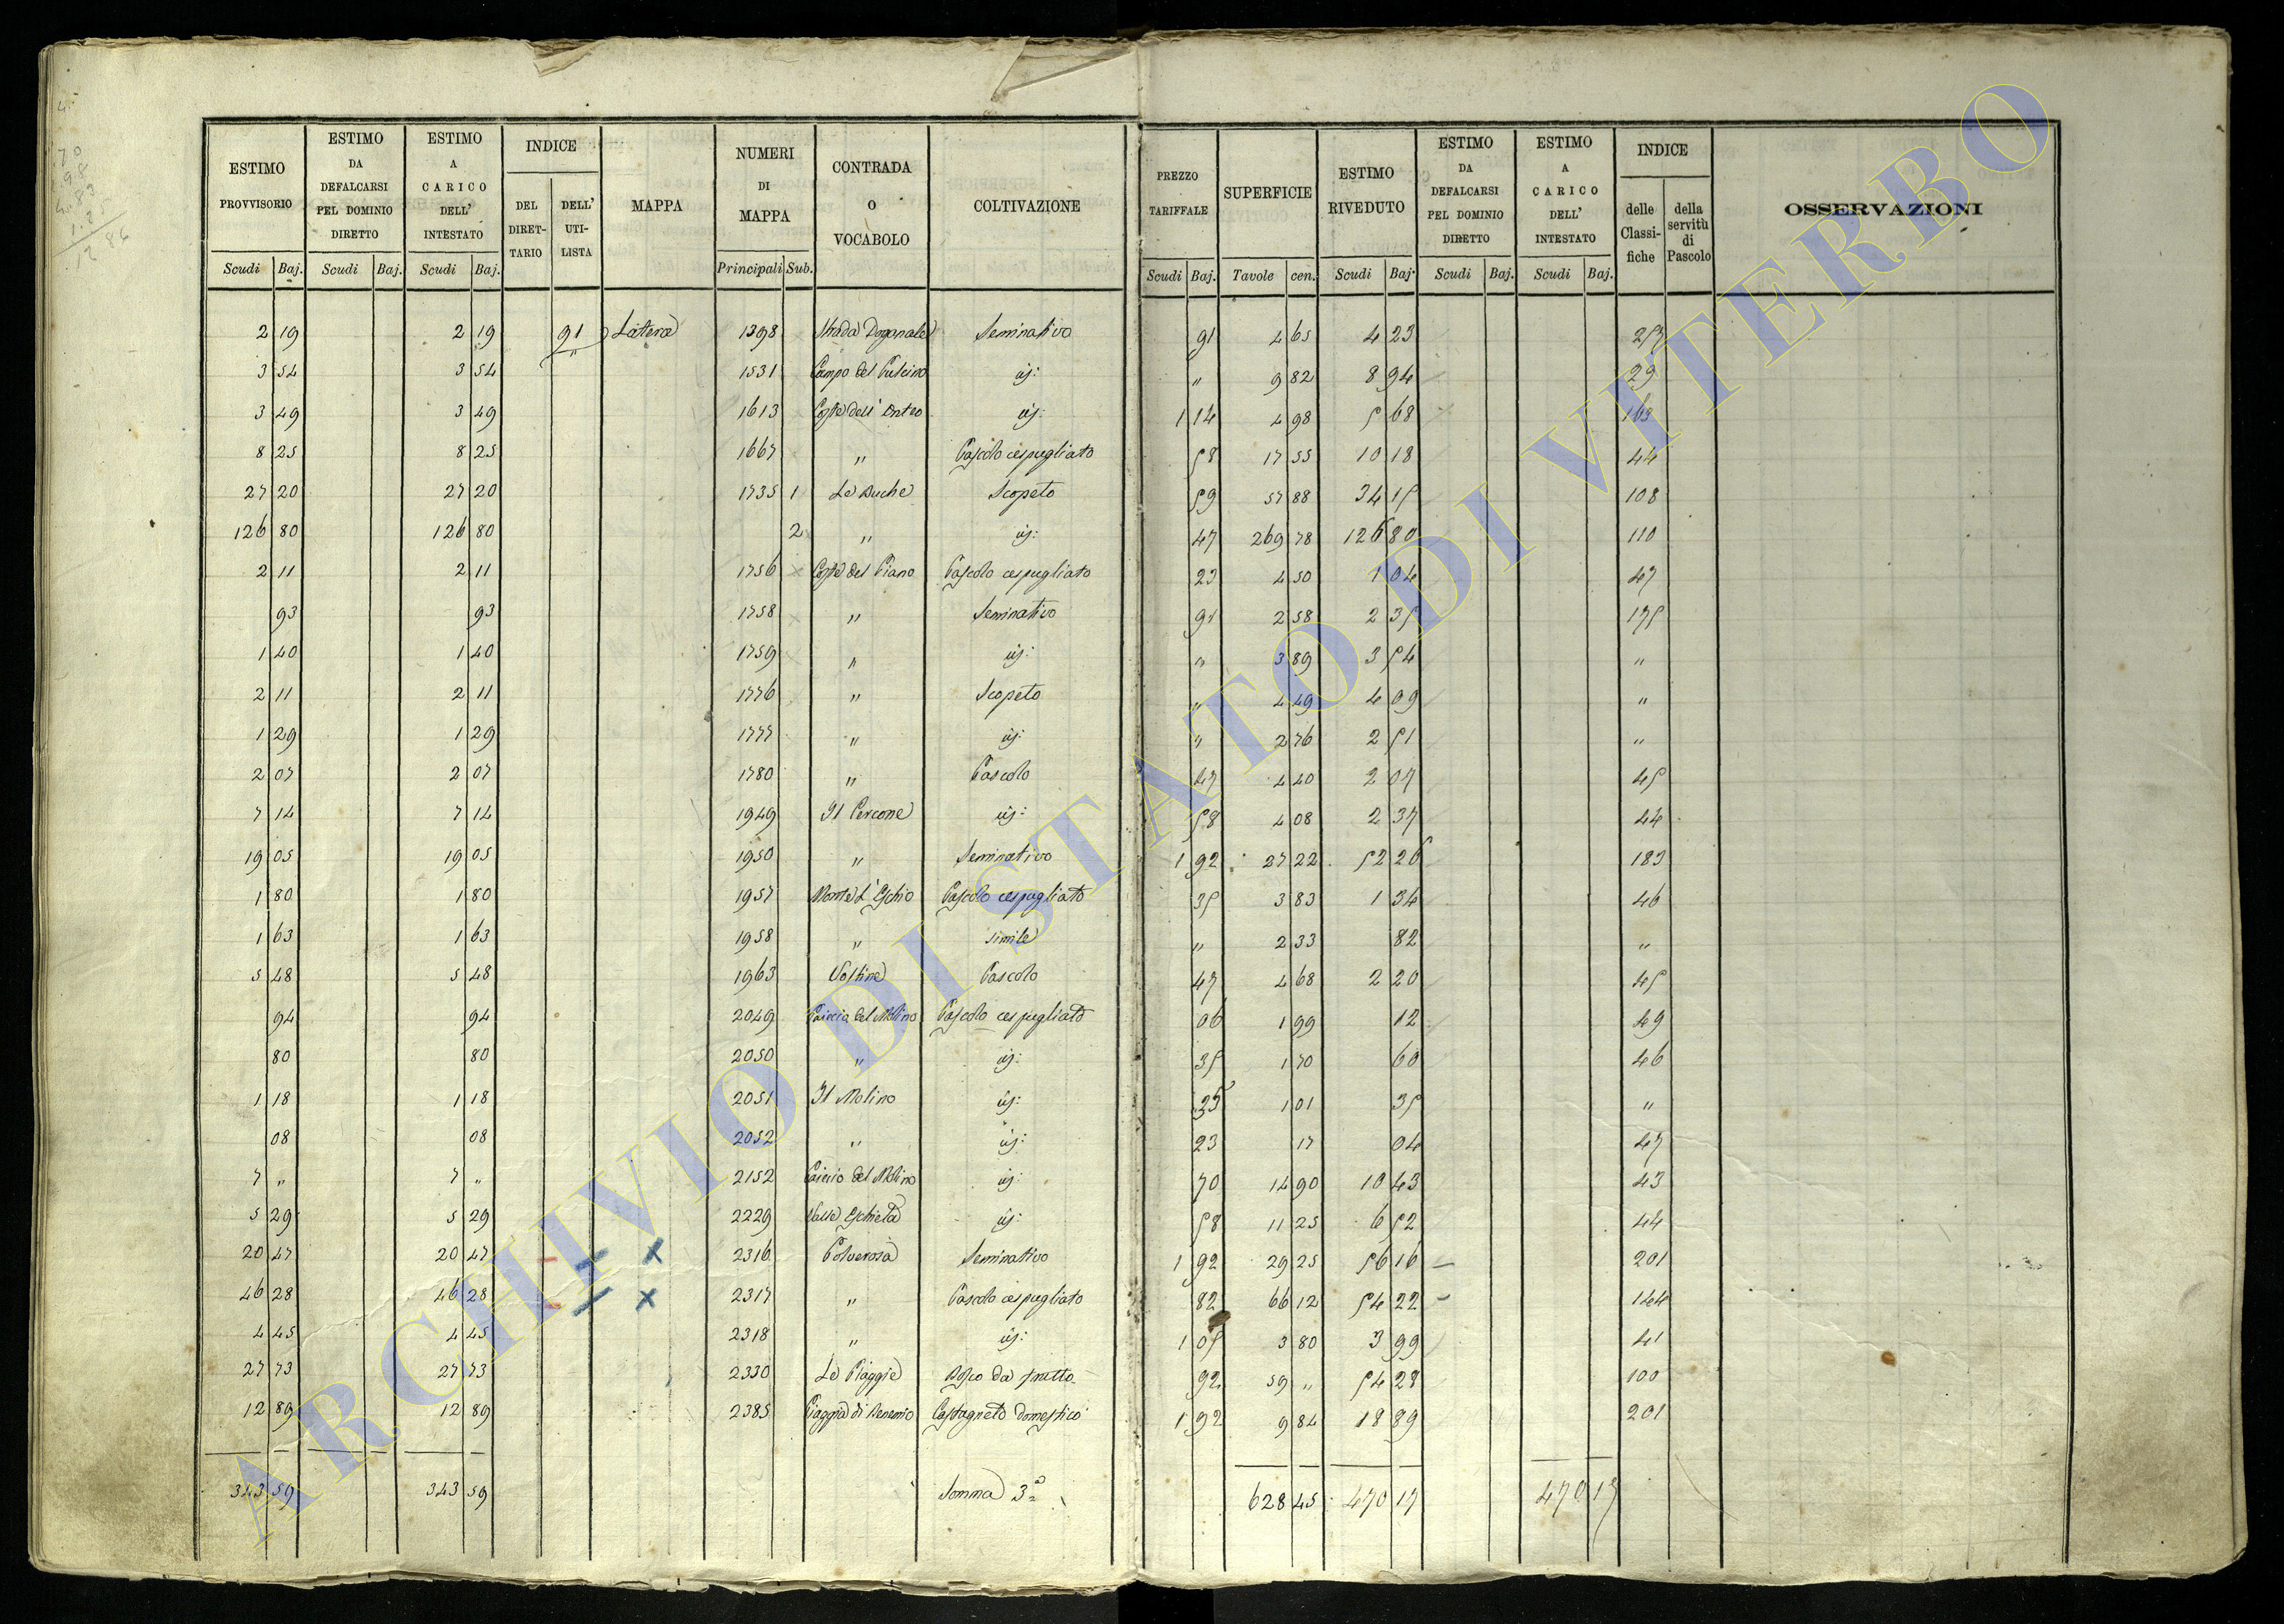 ESTIMO PROVVISORIO | ESTIMO DA DEFALCARSI PEL DOMINIO DIRETTO | ESTIMO A CARICO DELL' INTESTATO | INDICE | MAPPA | NUMERI DI MAPPA | CONTRADA O VOCABOLO | COLTIVAZIONE | PREZZO TARIFFALE | SUPERFICIE | ESTIMO RIVEDUTO | ESTIMO DA DEFALCARSI PEL DOMINIO DIRETTO | ESTIMO A CARICO DELL' INTESTATO | INDICE | OSSERVAZIONI
DEL DIRETTARIO | DELL' UTILISTA | delle Classifiche | della servitù di Pascolo
Scudi | Baj. | Scudi | Baj. | Scudi | Baj. | Principali | Sub. | Scudi | Baj. | Tavole | cen. | Scudi | Baj. | Scudi | Baj. | Scudi | Baj.
2 19 | 2 19 | 91 | Latera | 1398 | Strada Doganale | Seminativo | 91 | 4 65 | 4 23 | 217
3 54 | 3 54 | 1531 | Campo del Pulcino | id: | " | 9 82 | 8 94 | 29
3 49 | 3 49 | 1613 | Coste dell' | id: | 1 14 | 4 98 | 5 68 | 163
8 25 | 8 25 | 1667 | " | Pascolo cespugliato | 58 | 17 55 | 10 18 | 44
27 20 | 27 20 | 1735 | 1 | Le Buche | Scopeto | 59 | 57 88 | 34 15 | 108
126 80 | 126 80 | 2 | " | id: | 47 | 269 78 | 126 80 | 110
2 11 | 2 11 | 1756 | Coste del Piano | Pascolo cespugliato | 23 | 4 50 | 1 04 | 47
93 | 93 | 1758 | " | Seminativo | 91 | 2 58 | 2 35 | 175
1 40 | 1 40 | 1759 | " | id: | " | 3 89 | 3 54 | "
2 11 | 2 11 | 1776 | " | Scopeto | " | 4 49 | 4 09 | "
1 29 | 1 29 | 1777 | " | id: | " | 2 76 | 2 51 | "
2 07 | 2 07 | 1780 | " | Pascolo | 47 | 4 40 | 2 07 | 45
7 14 | 7 14 | 1949 | Il Percone | id: | 58 | 4 08 | 2 37 | 44
19 05 | 19 05 | 1950 | " | Seminativo | 1 92 | 27 22 | 52 26 | 183
1 80 | 1 80 | 1957 | Monte L'Eschio | Pascolo cespugliato | 35 | 3 83 | 1 34 | 46
1 63 | 1 63 | 1958 | " | simile | " | 2 33 | 82 | "
5 48 | 5 48 | 1963 | Pascolo | 47 | 4 68 | 2 20 | 45
94 | 94 | 2049 | del Molino | Pascolo cespugliato | 06 | 1 99 | 12 | 49
80 | 80 | 2050 | " | id: | 35 | 1 70 | 60 | 46
1 18 | 1 18 | 2051 | Il Molino | id: | 35 | 1 01 | 35 | "
08 | 08 | 2052 | " | id: | 23 | 17 | 04 | 47
7 " | 7 " | 2152 | del Molino | id: | 70 | 14 90 | 10 43 | 43
5 29 | 5 29 | 2229 | Valle Eschieta | id: | 58 | 11 25 | 6 52 | 44
20 47 | 20 47 | x | 2316 | Polverosa | Seminativo | 1 92 | 29 25 | 56 16 | 201
46 28 | 46 28 | x | 2317 | " | Pascolo cespugliato | 82 | 66 12 | 54 22 | 144
4 45 | 4 45 | 2318 | " | id: | 1 05 | 3 80 | 3 99 | 41
27 73 | 27 73 | 2330 | Le Piaggie | Bosco da frutto | 92 | 59 " | 54 28 | 100
12 89 | 12 89 | 2385 | Piaggia di | Castagneto domestico | 1 92 | 9 84 | 18 89 | 201
343 59 | 343 59 | Somma 3a | 628 45 | 470 17 | 470 17
ARCHIVIO DI STATO DI VITERBO